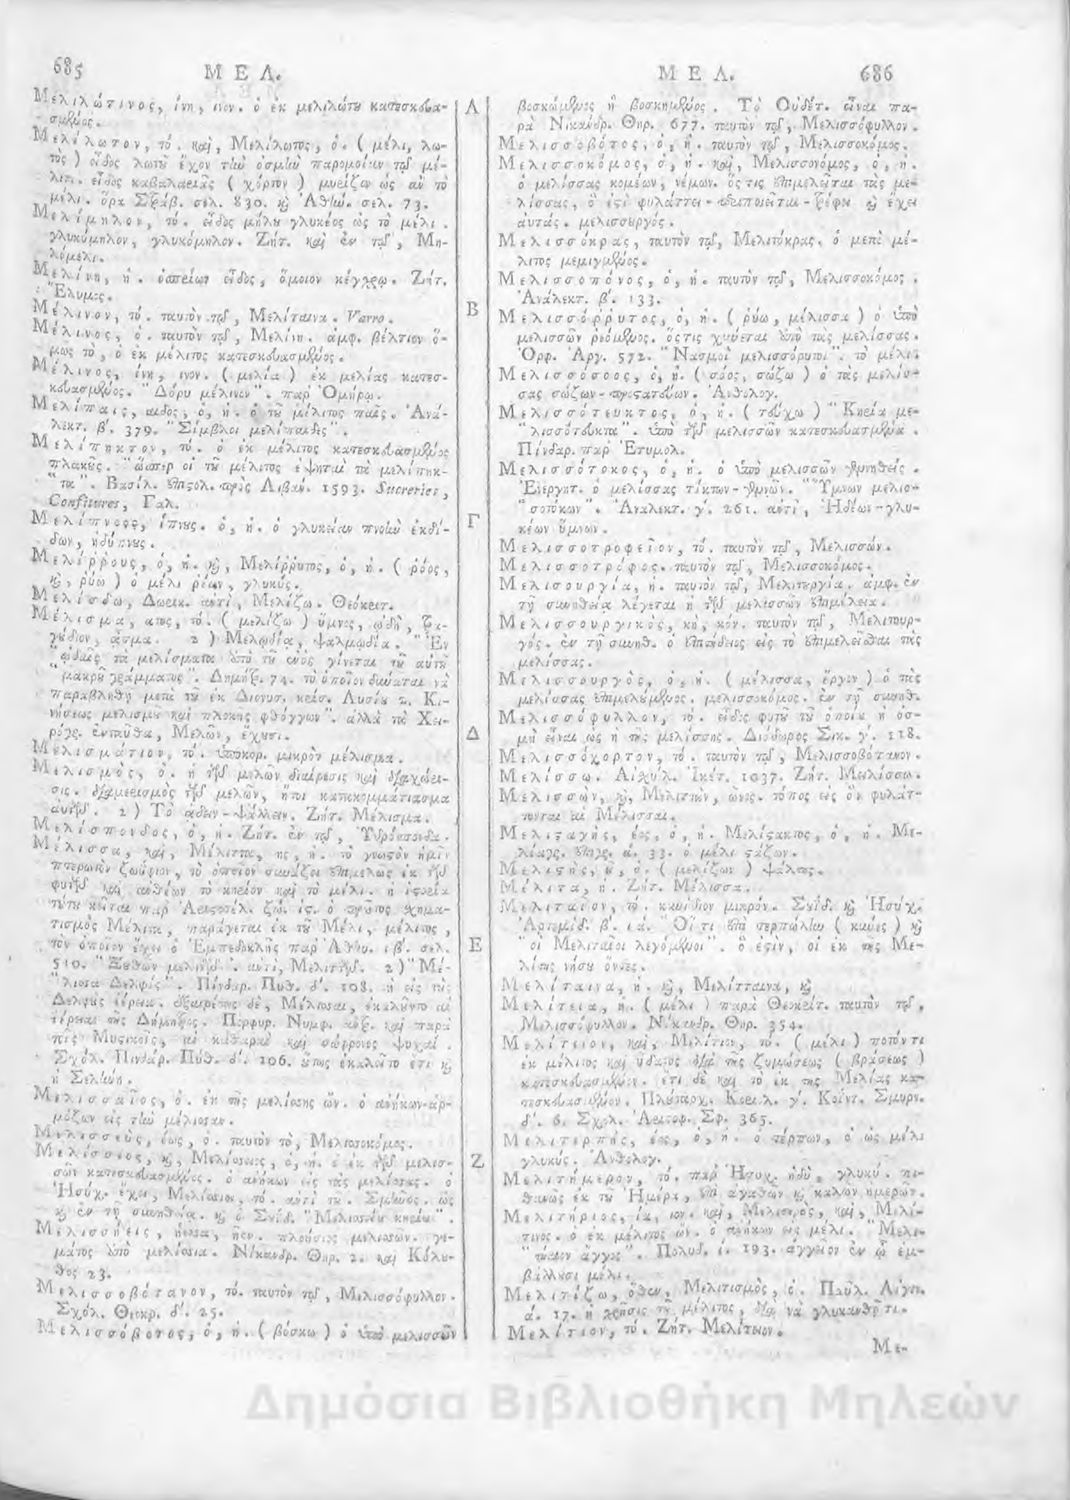 685
ΜΕΛ.
Μελιλώτινος, ίνη, ινον. ὁ ἐκ μελιλώτου κατεσκευα-
σμένος.
Μελίλωτον, τό. καὶ, Μελίλωτος, ὁ. ( μέλι, λω-
τὸς ) εἶδος λωτοῦ ἔχον τὴν ὀσμὴν παρομοίαν τῷ μέ-
λιτι. εἶδος ( χόρτον ) μυρίζον ὡς ἂν τὸ
μέλι. ὅρα Στράβ. σελ. 830. καὶ Ἀθήν. σελ. 73.
Μελίμηλον, τό. εἶδος μήλου γλυκέος ὡς τὸ μέλι.
γλυκύμηλον, γλυκόμηλον. Ζήτ. καὶ ἐν τῷ, Μη-
λόμελι.
Μελίνη, ἡ. ὀσπρίου εἶδος, ὅμοιον κέγχρῳ. Ζήτ.
Ἔλυμος.
Μέλινον, τό. ταυτὸν τῷ, Μελίταινα. Varro.
Μέλινος, ὁ. ταυτὸν τῷ, Μελίνη. ἀμφ. βέλτιον ὅ-
μως τὸ, ὁ ἐκ μέλιτος κατεσκευασμένος.
Μέλινος, ίνη, ινον. ( μελία ) ἐκ μελίας κατεσ-
κευασμένος. "Δόρυ μέλινον". παρ' Ὁμήρῳ.
Μελίπαις, αιδος, ὁ, ἡ. ὁ τοῦ μέλιτος παῖς. Ἀνά-
λεκτ. β'. 379. "Σίμβλοι μελίπαιδες".
Μελίπηκτον, τό. ὁ ἐκ μέλιτος κατεσκευασμένος
πλακοῦς. "ὥσπερ οἱ τοῦ μέλιτος ἑψηταὶ τὰ μελίπηκ-
"τα". Βασίλ. ἐπιστολ. πρὸς Λιβάν. 1593. Sucreries,
Confitures, Γαλ.
Μελίπνοος, ίπνους. ὁ, ἡ. ὁ γλυκεῖαν πνοὴν ἐκδί-
δων, ἡδύπνους.
Μελίρρους, ὁ, ἡ. καὶ, Μελίρρυτος, ὁ, ἡ. ( ῥόος,
καὶ, ῥύω ) ὁ μέλι ῥέων, γλυκύς.
Μελίσδω, Δωρικ. ἀντὶ, Μελίζω. Θεόκριτ.
Μέλισμα, ατος, τό. ( μελίζω ) ὕμνος, ᾠδὴ, τρα-
γούδιον, ᾆσμα. 2 ) Μελῳδία, ψαλμῳδία. "Ἐν
"ᾠδαῖς τὰ μελίσματα ἀπὸ τοῦ ἑνὸς γίνεται τοῦ αὐτοῦ
"μακροῦ γράμματος". Δημήτρ. 74. τὸ ὁποῖον δύναται νὰ
παραβληθῇ μετὰ τοῦ ἐκ Διονυσ. κρίσ. Λυσίου 2. Κι-
νήσεως μελισμοῦ καὶ πλοκῆς φθόγγων". ἀλλὰ τὰ Χει-
ρόγρ. ἐνταῦθα, Μελῶν, ἔχουσι.
Μελισμάτιον, τό. ὑποκορ. μικρὸν μέλισμα.
Μελισμὸς, ὁ. ἡ τῶν μελῶν διαίρεσις καὶ διαχώρι-
σις. διαμερισμὸς τῶν μελῶν, ἤτοι κατακομμάτιασμα
αὐτῶν. 2 ) Τὸ ᾄδειν - ψάλλειν. Ζήτ. Μέλισμα.
Μελίσπονδος, ὁ, ἡ. Ζήτ. ἐν τῷ, Ὑδρόσπονδα.
Μέλισσα, καὶ, Μέλιττα, ης, ἡ. τὸ γνωστὸν ἡμῖν
πτερωτὸν ζωΰφιον, τὸ ὁποῖον συνάζει ἐπιμελῶς ἐκ τῶν
φυτῶν καὶ ἀνθέων τὸ κηρίον καὶ τὸ μέλι. ἡ ἱστορία
τούτου κεῖται παρ' Ἀριστοτέλ. ζώ. ις. ὁ πρῶτος σχημα-
τισμὸς Μέλιττα, παράγεται ἐκ τοῦ Μέλι, μέλιτος,
τὸν ὁποῖον ἔχει ὁ Ἐμπεδοκλῆς παρ' Ἀθην. ιβ'. σελ.
510. "Ξουθῶν μελιτῶν". ἀντὶ, Μελιττῶν. 2) "Μέ-
"λισσα Δελφίς". Πίνδαρ. Πυθ. δ'. 108. ἡ εἰς τοὺς
Δελφοὺς ἱέρεια. ἐξαιρέτως δὲ, Μέλισσαι, ἐκαλοῦντο αἱ
ἱέρειαι τῆς Δήμητρος. Πορφυρ. Νυμφ. ἄντρ. καὶ παρὰ
τοῖς Μυστικοῖς, αἱ καθαραὶ καὶ σώφρονες ψυχαί.
Σχόλ. Πινδάρ. Πυθ. δ'. 106. οὕτως ἐκαλεῖτο ἔτι καὶ
ἡ Σελήνη.
Μελισσαῖος, ὁ. ἐκ τῆς μελίσσης ὤν. ὁ ἀνήκων-ἁρ-
μόζων εἰς τὴν μέλισσαν.
Μελισσεὺς, έως, ὁ. ταυτὸν τὸ, Μελισσοκόμος.
Μελίσσιος, καὶ, Μελίσσειος, ὁ, ἡ. ὁ ἐκ τῶν μελισ-
σῶν κατεσκευασμένος. ὁ ἀνήκων εἰς τὰς μελίσσας. ὁ
Ἡσύχ. ἔχει, Μελίσσιον, τό. ἀντὶ τοῦ. Σμῆνος. ὡς
καὶ ἐν τῇ συνηθείᾳ. καὶ ὁ Σουΐδ. "Μελισσείου κηρίου".
Μελισσήεις, ήεσσα, ῆεν. πλούσιος μελισσῶν. γέ-
ματος ἀπὸ μελίσσια. Νίκανδρ. Θηρ. 2. καὶ Κόλου-
θος 23.
Μελισσοβότανον, τό. ταυτὸν τῷ, Μελισσόφυλλον.
Σχόλ. Θεοκρ. δ'. 25.
Μελισσόβοτος, ὁ, ἡ. ( βόσκω ) ὁ ὑπὸ μελισσῶν
Α
Β
Γ
Δ
Ε
Ζ
ΜΕΛ.
686
βοσκόμενος ἢ βοσκημένος. Τὸ Οὐδέτ. εἶναι πα-
ρὰ Νικάνδρ. Θηρ. 677. ταυτὸν τῷ, Μελισσόφυλλον.
Μελισσοβότος, ὁ, ἡ. ταυτὸν τῷ, Μελισσοκόμος.
Μελισσοκόμος, ὁ, ἡ. καὶ, Μελισσονόμος, ὁ, ἡ.
ὁ μελίσσας κομέων, νέμων. ὅς τις ἐπιμελεῖται τὰς με-
λίσσας, ὅ ἐστι φυλάττει - περιποιεῖται - τρέφει καὶ ἔχει
αὐτάς. μελισσουργός.
Μελισσόκρας, ταυτὸν τῷ, Μελιτόκρας. ὁ μετὰ μέ-
λιτος μεμιγμένος.
Μελισσοπόνος, ὁ, ἡ. ταυτὸν τῷ, Μελισσοκόμος.
Ἀνάλεκτ. β'. 133.
Μελισσόρρυτος, ὁ, ἡ. ( ῥύω, μέλισσα ) ὁ ὑπὸ
μελισσῶν ῥεόμενος. ὅστις χύνεται ἀπὸ τὰς μελίσσας.
Ὀρφ. Ἀργ. 572. "Νασμοὶ μελισσόρυτοι". τὸ μέλι.
Μελισσόσοος, ὁ, ἡ. ( σόος, σώζω ) ὁ τὰς μελίσ-
σας σώζων - προστατεύων. Ἀνθολογ.
Μελισσότευκτος, ὁ, ἡ. ( τεύχω ) "Κηρία με-
"λισσότευκτα". ὑπὸ τῶν μελισσῶν κατεσκευασμένα.
Πίνδαρ. παρ' Ἐτυμολ.
Μελισσότοκος, ὁ, ἡ. ὁ ὑπὸ μελισσῶν γεννηθείς.
Ἐνεργητ. ὁ μελίσσας τίκτων - γεννῶν. "Ὕμνων μελισ-
"σοτόκων". Ἀνάλεκτ. γ'. 261. ἀντὶ, Ἡδέων - γλυ-
κέων ὕμνων.
Μελισσοτροφεῖον, τό. ταυτὸν τῷ, Μελισσών.
Μελισσοτρόφος. ταυτὸν τῷ, Μελισσοκόμος.
Μελισουργία, ἡ. ταυτὸν τῷ, Μελιτουργία. ἀμφ. ἐν
τῇ συνηθείᾳ λέγεται ἡ τῶν μελισσῶν ἐπιμέλεια.
Μελισσουργικὸς, κὴ, κόν. ταυτὸν τῷ, Μελιτουρ-
γός. ἐν τῇ συνηθ. ὁ ἐπιτήδειος εἰς τὸ ἐπιμελεῖσθαι τὰς
μελίσσας.
Μελισσουργὸς, ὁ, ἡ. ( μέλισσα, ἔργον ) ὁ τὰς
μελίσσας ἐπιμελούμενος. μελισσοκόμος. ἐν τῇ συνηθ.
Μελισσόφυλλον, τό. εἶδος φυτοῦ τοῦ ὁποίου ἡ ὀσ-
μὴ εἶναι ὡς ἡ τῆς μελίσσης. Διόδωρος Σικ. γ'. 118.
Μελισσόχορτον, τό. ταυτὸν τῷ, Μελισσοβότανον.
Μελίσσω. Αἰσχύλ. Ἱκέτ. 1037. Ζήτ. Μειλίσσω.
Μελισσὼν, καὶ, Μελιττὼν, ῶνος. τόπος εἰς ὃν φυλάτ-
τονται αἱ Μέλισσαι.
Μελισταγὴς, έος, ὁ, ἡ. Μελίστακτος, ὁ, ἡ. Με-
λέαγρ. ἐπιγρ. ά. 33. ὁ μέλι στάζων.
Μελιστὴς, οῦ, ὁ. ( μελίζων ) ψάλτης.
Μέλιτα, ἡ. Ζήτ. Μέλισσα.
Μελιταῖον, τό. κυνίδιον μικρόν. Σουΐδ. καὶ Ἡσύχ.
Ἀρτεμίδ. β'. ιά. "Οἵ τε ἐπὶ τερπωλῇ ( κύνες ) καὶ
"οἱ Μελιταῖοι λεγόμενοι". ὅ ἐστιν, οἱ ἐκ τῆς Με-
λίτης νήσου ὄντες.
Μελίταινα, ἡ. καὶ, Μελίτταινα, καὶ
Μελίτεια, ἡ. ( μέλι ) παρὰ Θεοκρίτ. ταυτὸν τῷ,
Μελισσόφυλλον. Νίκανδρ. Θηρ. 554.
Μελίτειον, καὶ, Μελίτιον, τό. ( μέλι ) ποτόν τι
ἐκ μέλιτος καὶ ὕδατος διὰ τῆς ζυμώσεως ( βράσεως )
κατεσκευασμένον. ἔτι δὲ καὶ τὸ ἐκ τῆς Μελίας κα-
τεσκευασμένον. Πλούταρχ. Κοριολ. γ'. Κοΐντ. Σμυρν.
δ'. 6. Σχόλ. Ἀριστοφ. Σφ. 365.
Μελιτερπὴς, έος, ὁ, ἡ. ὁ τέρπων, ὁ ὡς μέλι
γλυκύς. Ἀνθολογ.
Μελιτήμερον, τό. παρ' Ἡσυχ. ἡδὺ, γλυκύ. πι-
θανῶς ἐκ τοῦ Ἡμέρα, ἐπὶ ἀγαθῶν καὶ καλῶν ἡμερῶν.
Μελιτήριος, ία, ιον. καὶ, Μελιτηρὸς, καὶ, Μελί-
τινος. ὁ ἐκ μέλιτος ὤν. ὁ ἀνήκων εἰς μέλι. "Μελι-
"τήριον ἄγγος". Πολυδ. ί. 193. ἀγγεῖον ἐν ᾧ ἐμ-
βάλλουσι μέλι.
Μελιτίζω, ὅθεν, Μελιτισμὸς, ὁ. Παῦλ. Αἰγιν.
ά. 17. ἡ χρῆσις τοῦ μέλιτος, διὰ νὰ γλυκανθῇ τι.
Μελίτιον, τό. Ζήτ. Μελίτειον.
Με-
Δημόσια Βιβλιοθήκη Μηλεών